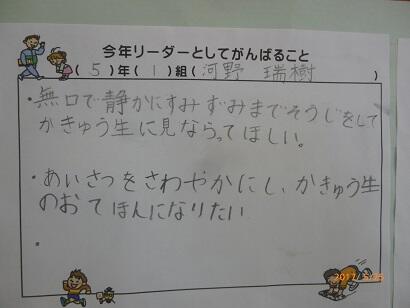 今年リーダーとしてがんばること
(5)年(1)組(河野 瑞樹)
・無口で静かにすみずみまでそうじをして
かきゅう生に見ならってほしい。
・あいさつをさわやかにし、かきゅう生
のおてほんになりたい
・